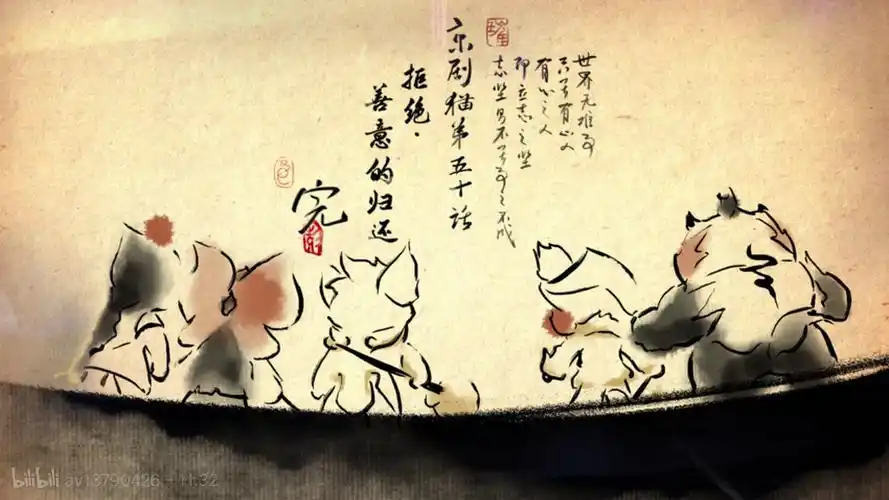 世界无难事
只畏有心人
有心之人
即立志之坚
志坚则不畏事之不成
京剧猫第五十话
拒绝·
善意的归还
完
bilibili av13790426 - 11:32